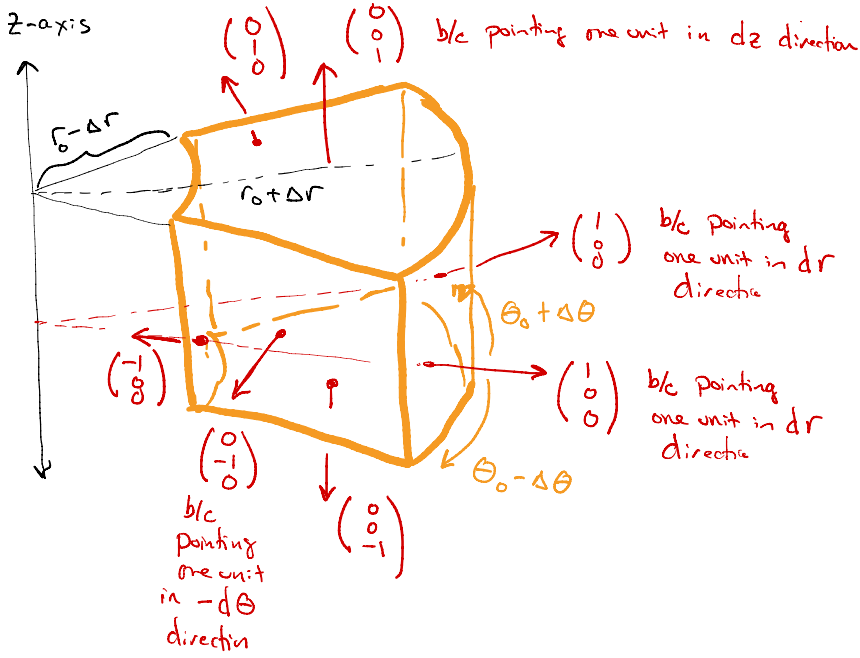 z-axis
(0 1 0)
(0 0 1) b/c pointing one unit in dz direction
r₀-Δr
r₀+Δr
(1 0 0)
b/c pointing
one unit in dr
directio
θ₀+Δθ
(-1 0 0)
(1 0 0)
b/c pointing
one unit in dr
directio
θ₀-Δθ
(0 -1 0)
b/c
pointing
one unit
in -dθ
direction
(0 0 -1)